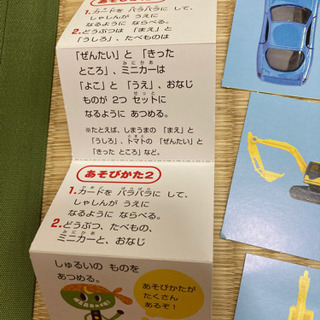 あそびかた1
1.カードを バラバラに して、
しゃしんが うえに
なるように ならべる。
2.どうぶつは 「まえ」と
「うしろ」、たべものは
「ぜんたい」と 「きった
ところ」、ミニカーは
「よこ」と 「うえ」、おなじ
ものが 2つ セットに
なるように あつめる。
※たとえば、しまうまの 「まえ」と
「うしろ」、トマトの 「ぜんたい」と
「きった ところ」など。
あそびかた2
1.カードを バラバラに して、
しゃしんが うえに
なるように ならべる。
2.どうぶつ、たべもの、
ミニカーと、おなじ
しゅるいの ものを
あつめる。
あそびかたが
たくさん
あるぞ!